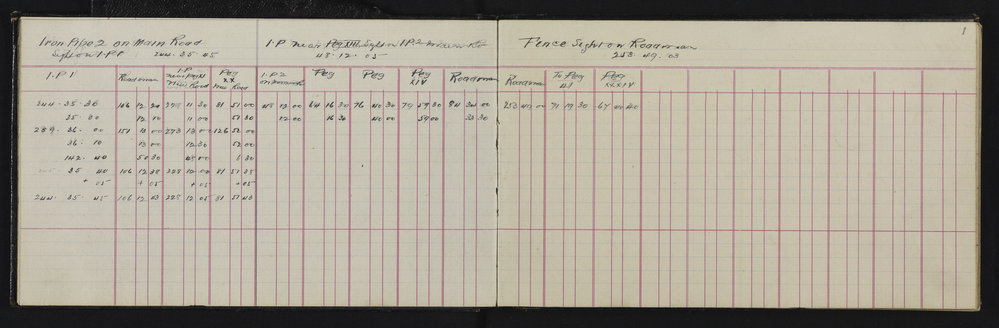 1
Iron Pipe 2 on Main Road
Sight on I.P.1 244. 35. 45
I.P near Peg Sight on I.P.2 Main Rd
48. 12. 03
Fence Sight on Roadman
253. 49. 03
I.P 1 Roadman I.P near Peg New Road Peg XX New Road I.P 2 Peg Peg Peg XIV Roadman Roadman To Peg Peg XXXIV
244. 35. 30 106 12 20 11 30 81 51 00 48 12 00 64 16 30 76 40 30 79 59 30 84 34 00 253 49 00 71 19 30 67 40
35. 30 12 10 11 00 51 30 12 00 16 30 40 00 59 00 33 30
289. 36. 00 151 13 00 273 13 00 126 52 00
36. 10 13 00 12 30 52 00
142. 40 50 30 48 00 6 30
35 40 106 12 38 228 12 00 81 51 38
+ 05 + 05 + 05 + 05
244. 35. 45 106 12 43 228 12 05 81 51 43